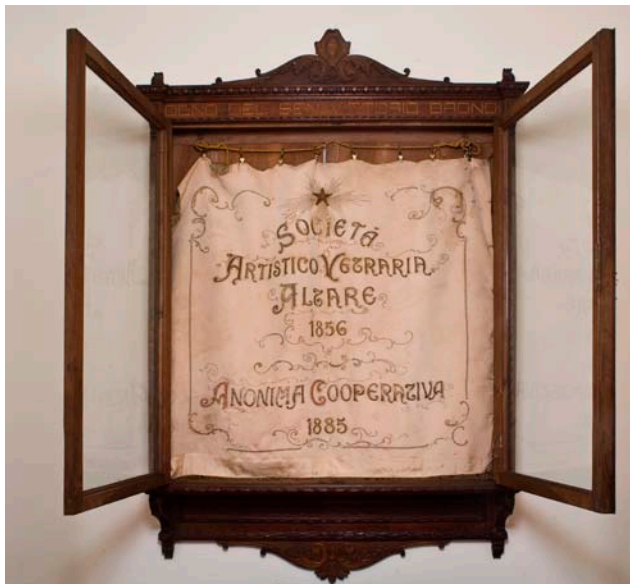 DONO DEL SEN. VITTORIO
SOCIETÀ
ARTISTICO VETRARIA
ALTARE
1856
ANONIMA COOPERATIVA
1885